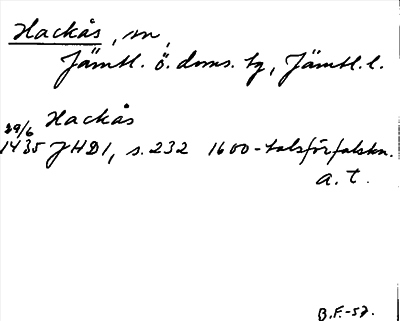 Hackås, sn,
Jämtl. ö. doms. tg, Jämtl. l.
Hackås
29/6
1435 JHD1, s. 232 1600-talsförfalskn.
a. t.
B.F.-57.